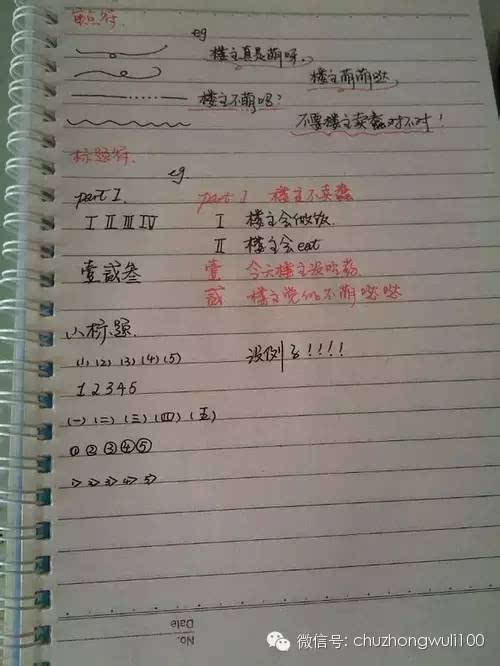 重点符
eg
楼主真是萌呀。
楼主萌萌哒
楼主不萌吗?
不要楼主卖蠢对不对!
标题符.
eg.
part I. part I 楼主不卖蠢
I II III IV I 楼主会做饭.
II 楼主会eat
壹贰叁 壹 今天楼主没吃药
贰 楼主觉得不萌哒哒
小标题.
(1) (2) (3) (4) (5) 没例了!!!!
1 2 3 4 5
(一) (二) (三) (四) (五)
① ② ③ ④ ⑤
1> 2> 3> 4> 5>
No.
Date
微信号: chuzhongwuli100